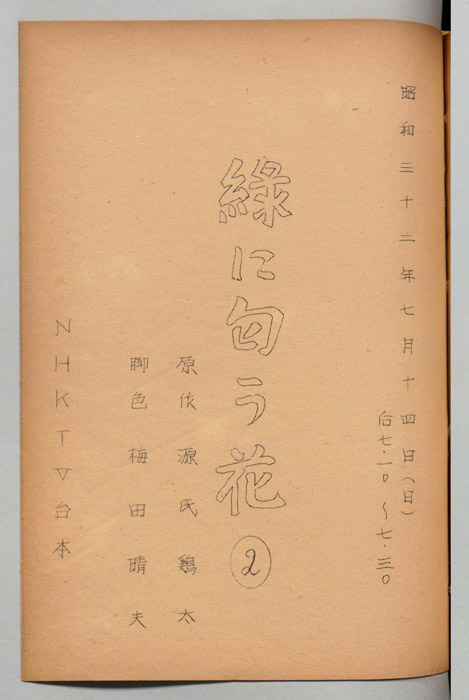 昭和三十二年七月十四日(日)
后七.一〇〜七.三〇
緑に匂う花②
原作 源氏鶏太
脚色 梅田晴夫
NHKTV台本